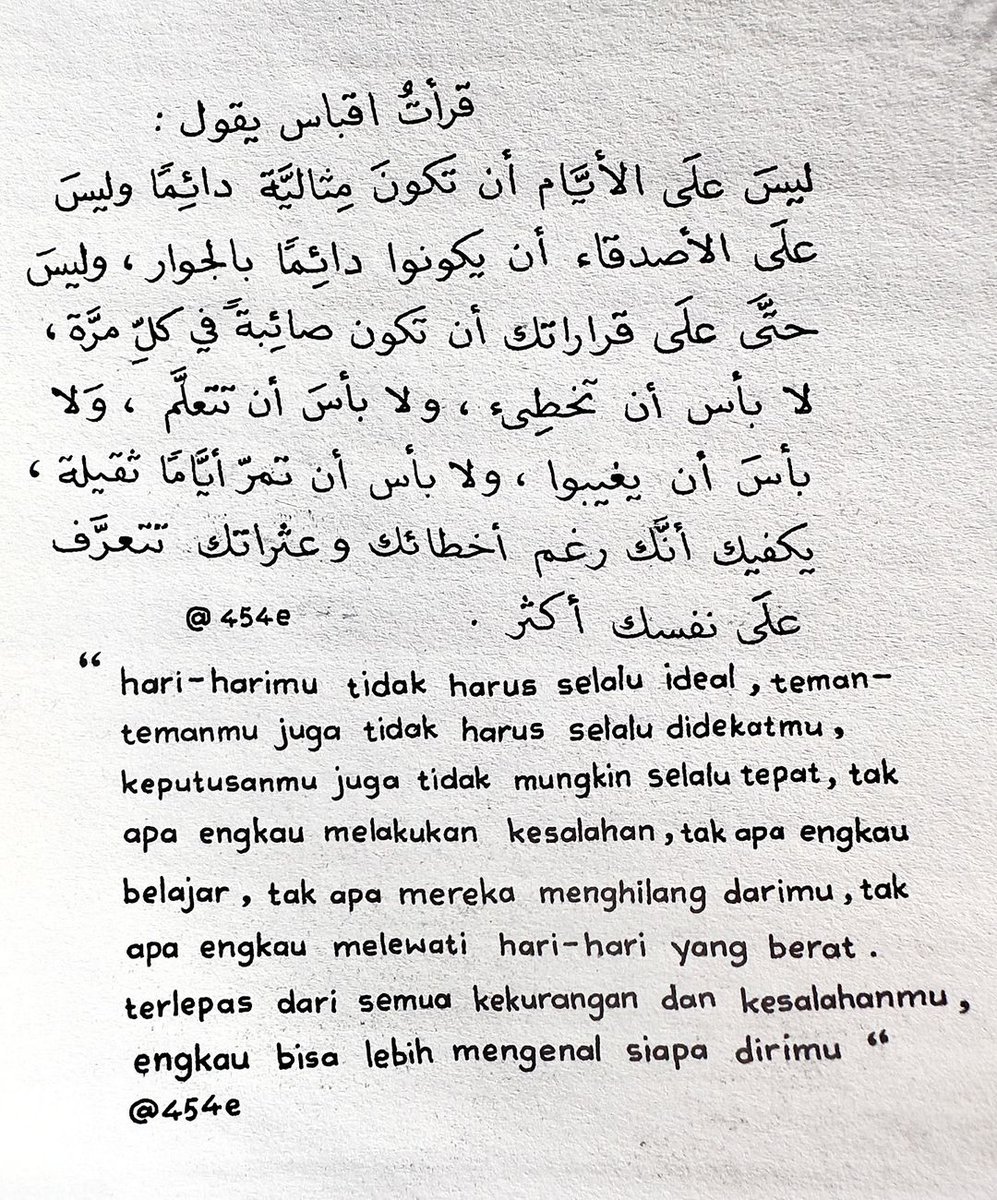 قرأتُ اقباس يقول :
ليسَ علَى الأيَّام أن تَكونَ مِثاليَّة دائِمًا وليسَ
علَى الأصدقاء أن يكونوا دائِمًا بالجوار ، وليسَ
حتَّى علَى قراراتك أن تَكون صائِبةً في كلِّ مرَّة ،
لا بأس أن تخطِىء ، ولا بأسَ أن تتعلَّم ، وَلا
بأسَ أن يغيبوا ، ولا بأس أن تمرّ أيَّامًا ثقيلة ،
يكفيك أنَّك رغم أخطائك وعثراتك تتعرَّف
علَى نفسك أكثر .
@454e
“ hari-harimu tidak harus selalu ideal , teman-
temanmu juga tidak harus selalu didekatmu ,
keputusanmu juga tidak mungkin selalu tepat , tak
apa engkau melakukan kesalahan , tak apa engkau
belajar , tak apa mereka menghilang darimu , tak
apa engkau melewati hari-hari yang berat .
terlepas dari semua kekurangan dan kesalahanmu ,
engkau bisa lebih mengenal siapa dirimu “
@454e